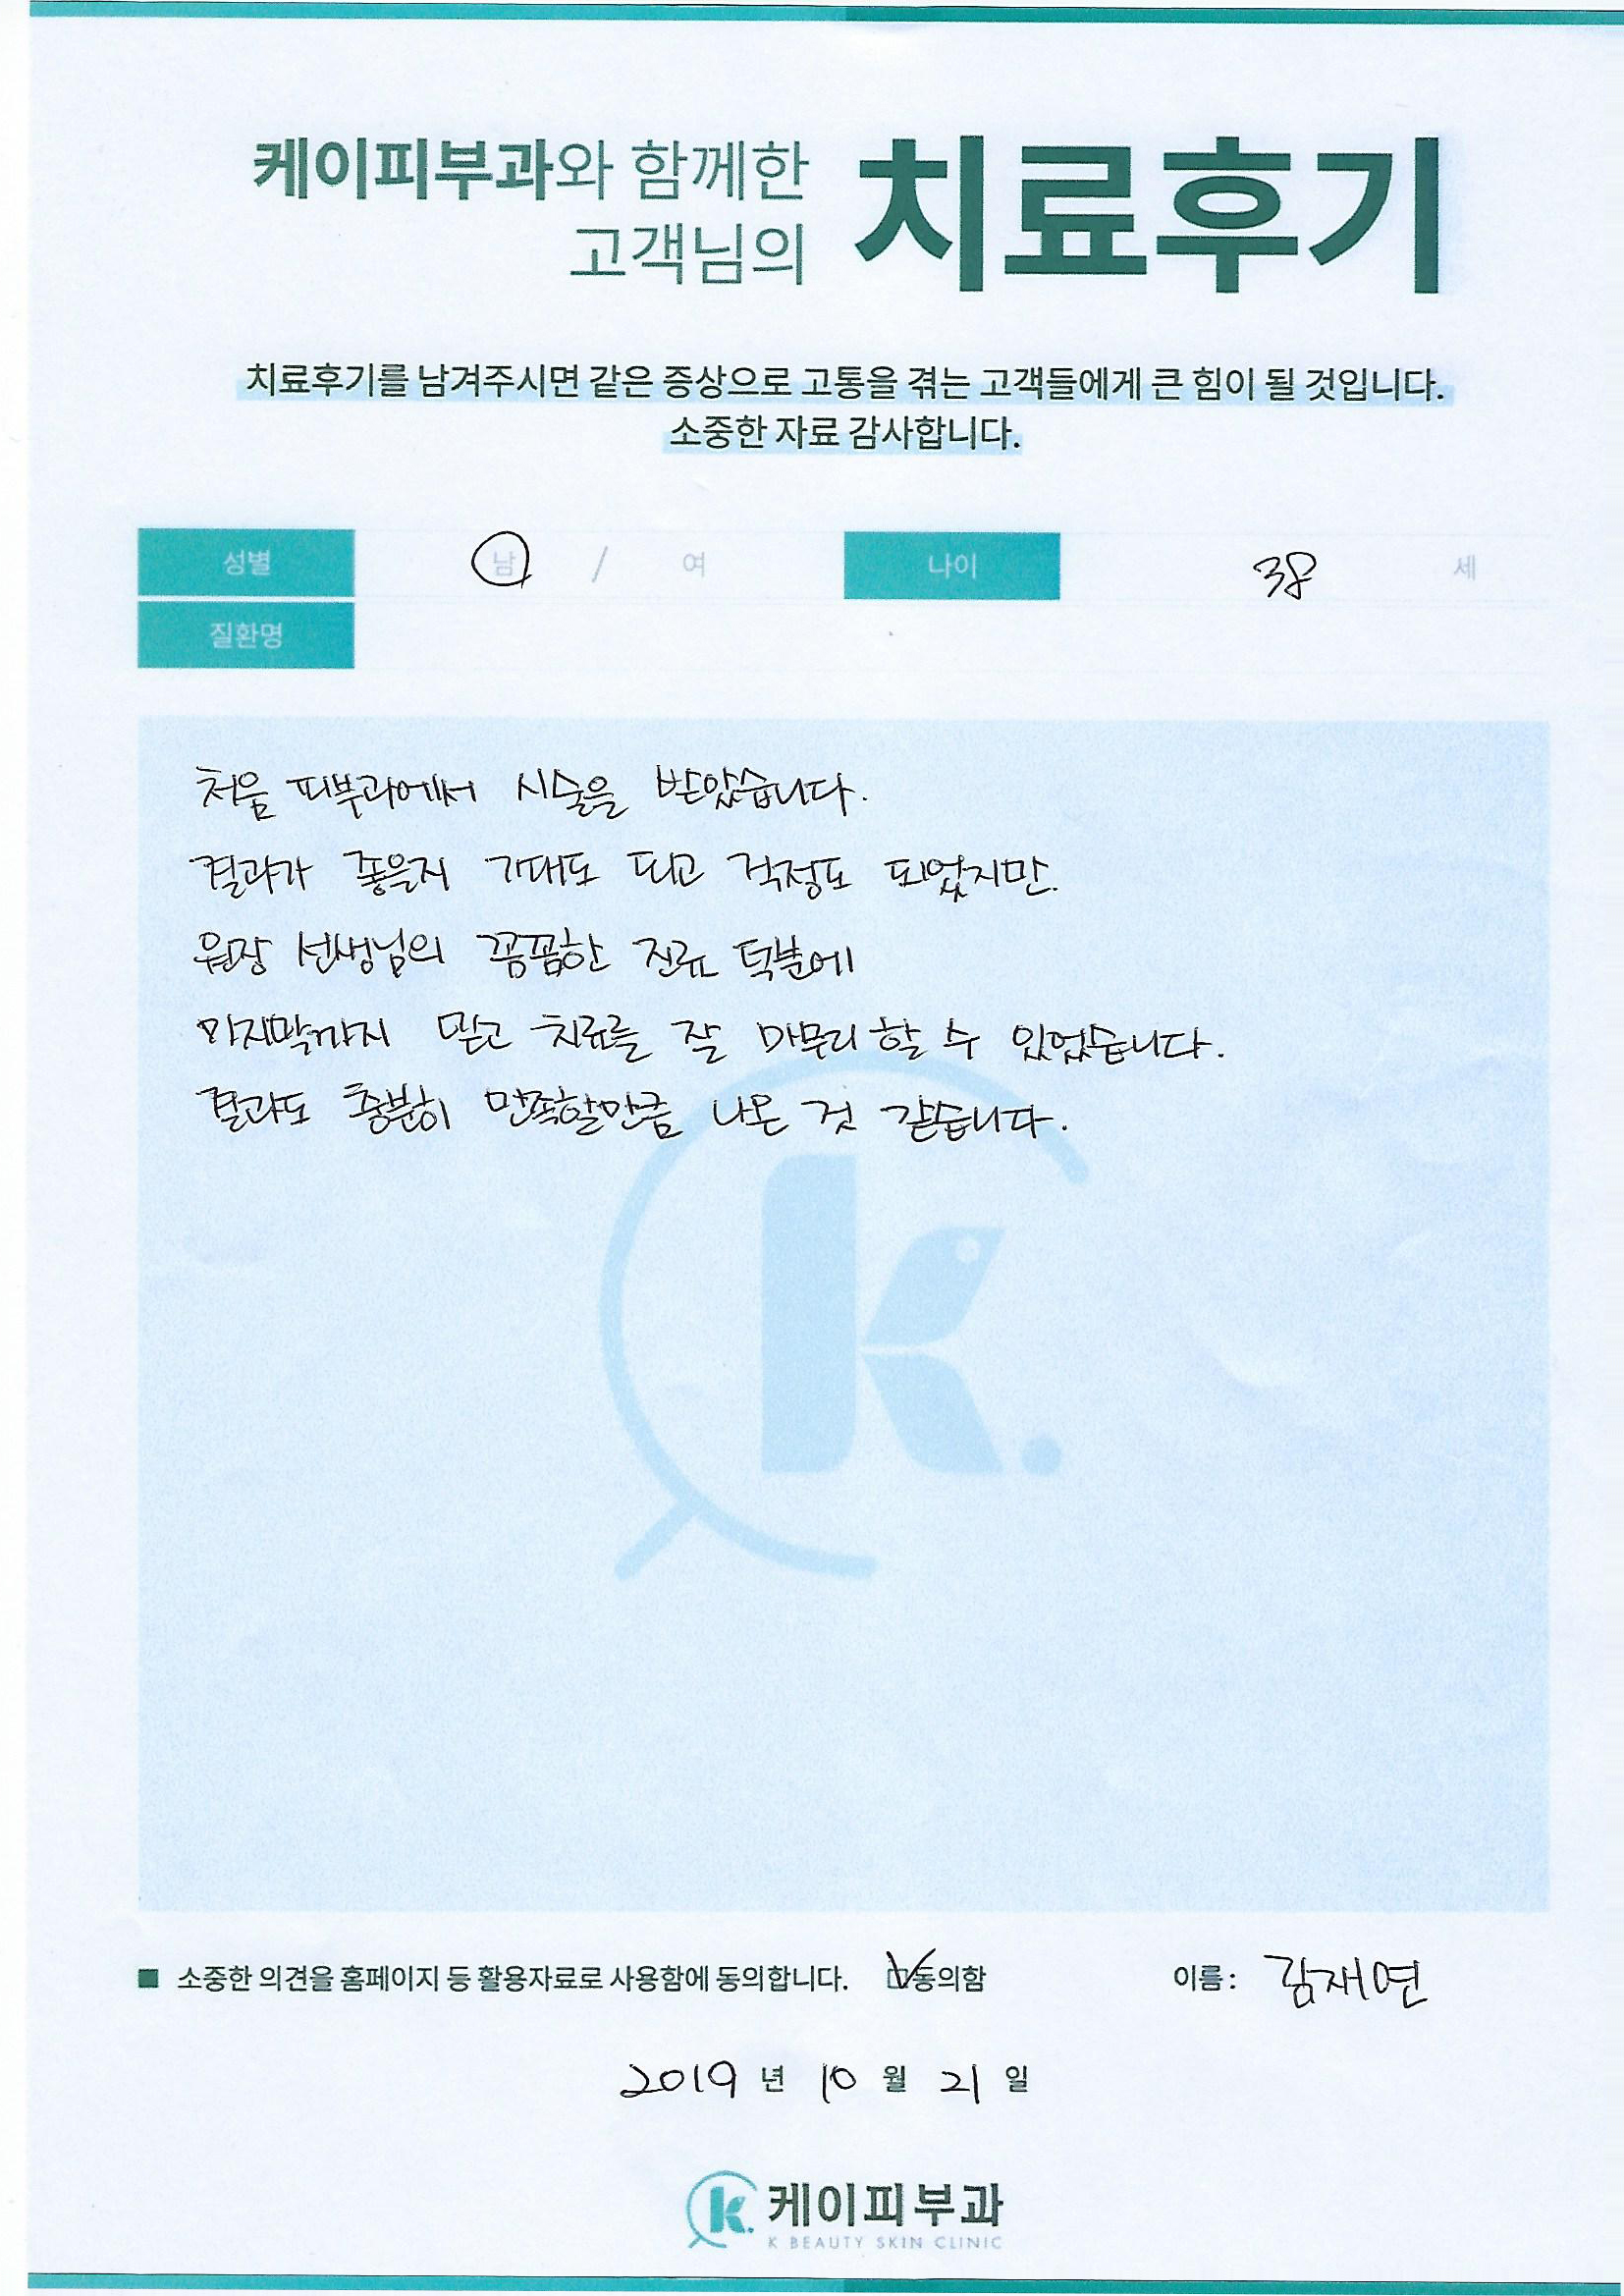 케이피부과와 함께한
고객님의
치료후기
치료후기를 남겨주시면 같은 증상으로 고통을 겪는 고객들에게 큰 힘이 될 것입니다.
소중한 자료 감사합니다.
성별 남 / 여 나이 38 세
질환명
처음 피부과에서 시술을 받았습니다.
결과가 좋을지 기대도 되고 걱정도 되었지만.
원장 선생님의 꼼꼼한 진료 덕분에
마지막까지 믿고 치료를 잘 마무리 할 수 있었습니다.
결과도 충분히 만족할만큼 나온 것 같습니다.
K.
■ 소중한 의견을 홈페이지 등 활용자료로 사용함에 동의합니다. 동의함 이름: 김재연
2019 년 10 월 21 일
K. 케이피부과
K BEAUTY SKIN CLINIC